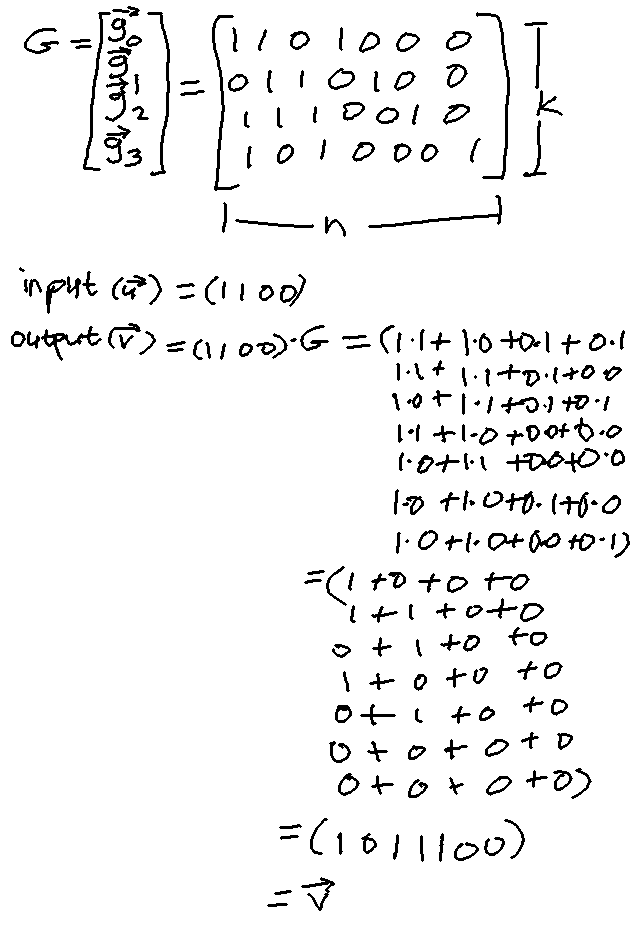 G = [g⃗0 g⃗1 g⃗2 g⃗3] = [1 1 0 1 0 0 0
0 1 1 0 1 0 0
1 1 1 0 0 1 0
1 0 1 0 0 0 1] k
n
input (u⃗) = (1 1 0 0)
output (v⃗) = (1 1 0 0)·G = (1·1 + 1·0 + 0·1 + 0·1
1·1 + 1·1 + 0·1 + 0·0
1·0 + 1·1 + 0·1 + 0·1
1·1 + 1·0 + 0·0 + 0·0
1·0 + 1·1 + 0·0 + 0·0
1·0 + 1·0 + 0·1 + 0·0
1·0 + 1·0 + 0·0 + 0·1)
= (1 + 0 + 0 + 0
1 + 1 + 0 + 0
0 + 1 + 0 + 0
1 + 0 + 0 + 0
0 + 1 + 0 + 0
0 + 0 + 0 + 0
0 + 0 + 0 + 0)
= (1 0 1 1 1 0 0)
= v⃗